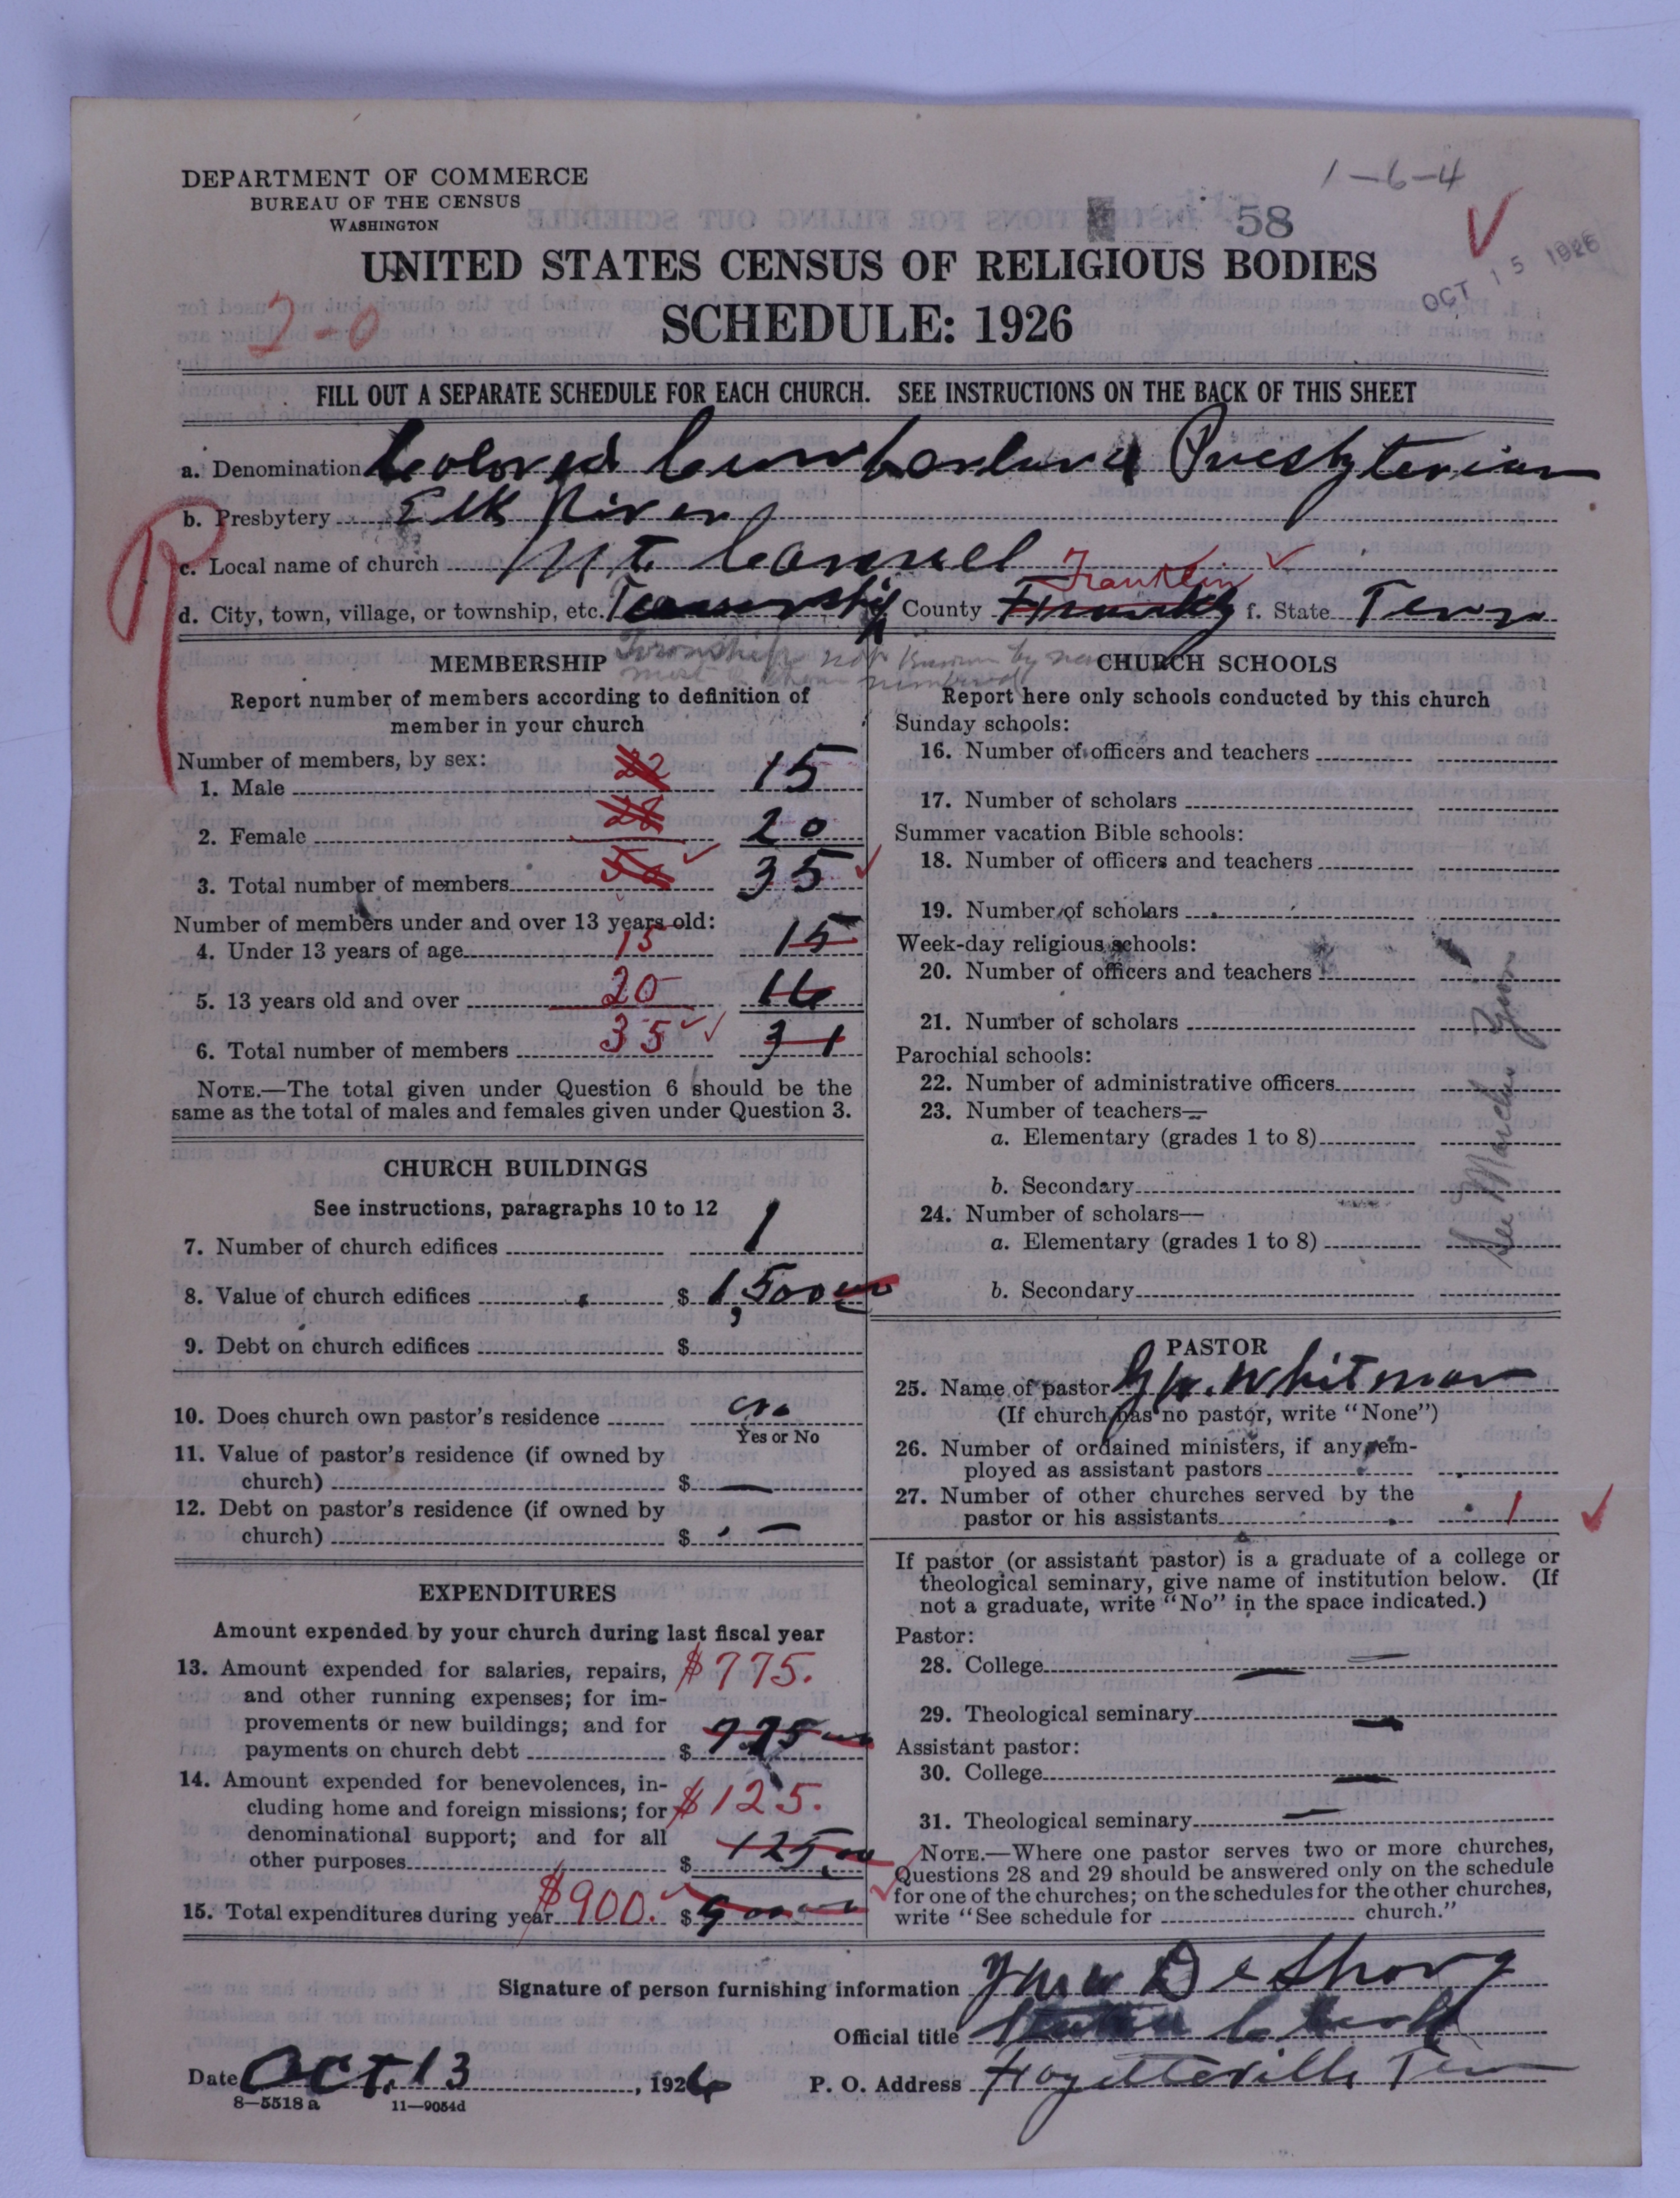 1-6-4
DEPARTMENT OF COMMERCE
BUREAU OF THE CENSUS
WASHINGTON
58
OCT 15 1926
UNITED STATES CENSUS OF RELIGIOUS BODIES
2-0
SCHEDULE: 1926
FILL OUT A SEPARATE SCHEDULE FOR EACH CHURCH. SEE INSTRUCTIONS ON THE BACK OF THIS SHEET
a. Denomination Colored Cumberland Presbyterian
b. Presbytery Elk River
R
c. Local name of church Mt Carmel
Franklin
d. City, town, village, or township, etc. Township County f. State Tenn
Township not known by
MEMBERSHIP
Report number of members according to definition of
member in your church
Number of members, by sex:
1. Male 22 15
2. Female 20
3. Total number of members 35
Number of members under and over 13 years old:
4. Under 13 years of age 15 15
5. 13 years old and over 20 16
6. Total number of members 35 31
NOTE.—The total given under Question 6 should be the
same as the total of males and females given under Question 3.
CHURCH BUILDINGS
See instructions, paragraphs 10 to 12
7. Number of church edifices 1
8. Value of church edifices $ 1,500 00
9. Debt on church edifices $
10. Does church own pastor's residence no
Yes or No
11. Value of pastor's residence (if owned by
church) $ —
12. Debt on pastor's residence (if owned by
church) $ —
EXPENDITURES
Amount expended by your church during last fiscal year
13. Amount expended for salaries, repairs, $775.
and other running expenses; for im-
provements or new buildings; and for
payments on church debt $ 775 00
14. Amount expended for benevolences, in-
cluding home and foreign missions; for $125.
denominational support; and for all
other purposes $ 125.00
15. Total expenditures during year $900. $ 900 00
CHURCH SCHOOLS
Report here only schools conducted by this church
Sunday schools:
16. Number of officers and teachers
17. Number of scholars
Summer vacation Bible schools:
18. Number of officers and teachers
19. Number of scholars
Week-day religious schools:
20. Number of officers and teachers
21. Number of scholars
Parochial schools:
22. Number of administrative officers
23. Number of teachers—
a. Elementary (grades 1 to 8)
b. Secondary
24. Number of scholars—
a. Elementary (grades 1 to 8)
b. Secondary
See
PASTOR
25. Name of pastor G.W. Whitman
(If church has no pastor, write "None")
26. Number of ordained ministers, if any, em-
ployed as assistant pastors
27. Number of other churches served by the
pastor or his assistants 1
If pastor (or assistant pastor) is a graduate of a college or
theological seminary, give name of institution below. (If
not a graduate, write "No" in the space indicated.)
Pastor:
28. College —
29. Theological seminary —
Assistant pastor:
30. College —
31. Theological seminary —
NOTE.—Where one pastor serves two or more churches,
Questions 28 and 29 should be answered only on the schedule
for one of the churches; on the schedules for the other churches,
write "See schedule for church."
Signature of person furnishing information
Official title Clerk
Date Oct. 13, 1926 P. O. Address Fayetteville Tenn
8—5518 a 11—9054d